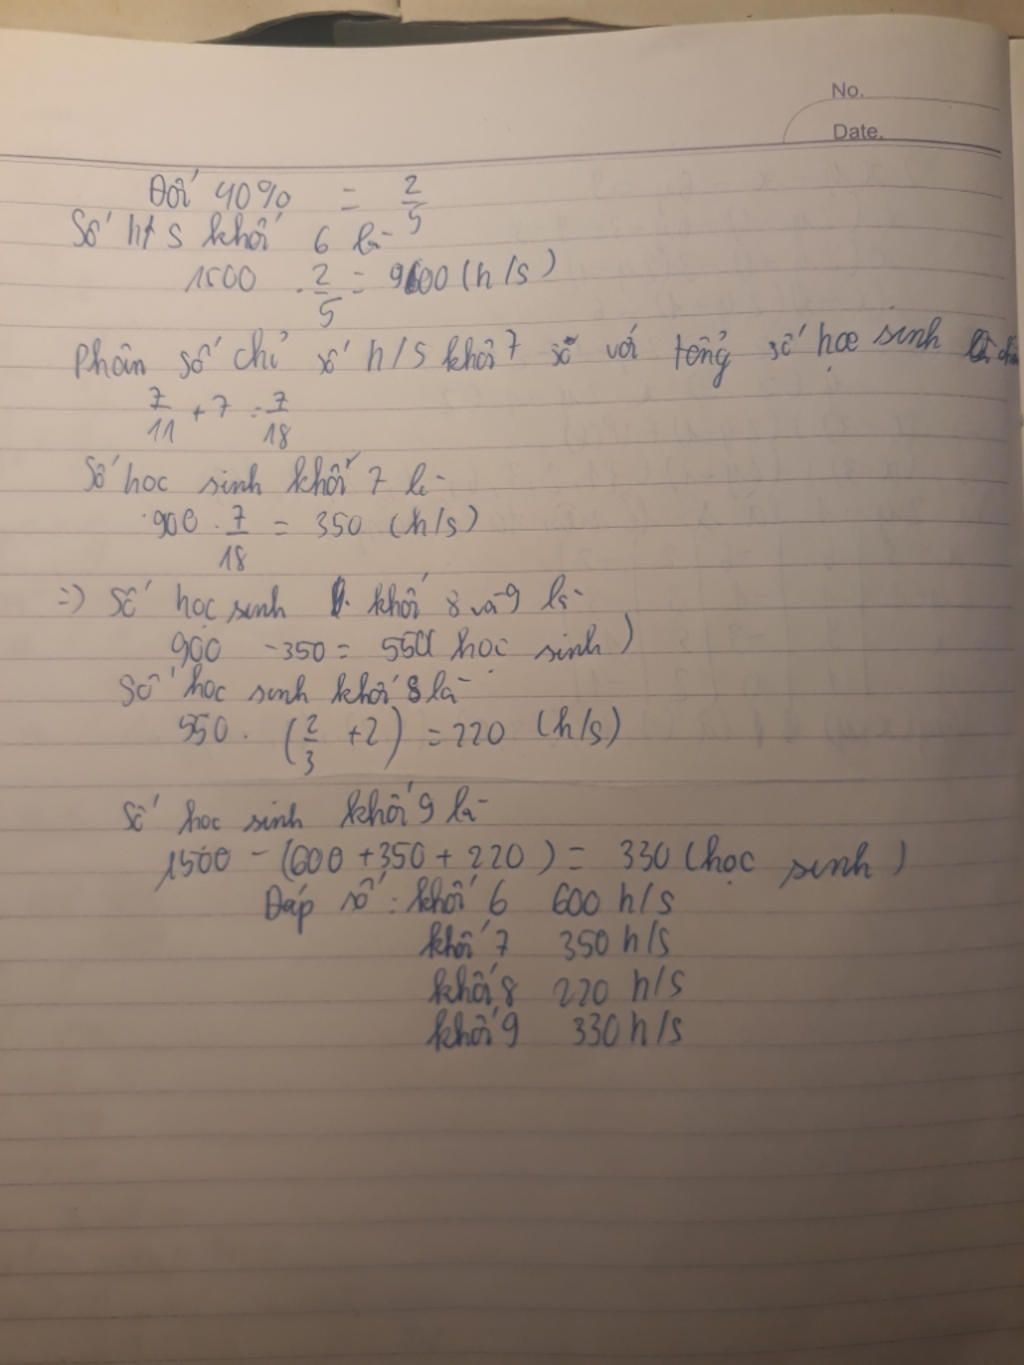 No.
Date.
Đổi 40% = 2/5
Số h/s khối 6 là
1500 . 2/5 = 600 (h/s)
Phân số chỉ số h/s khối 7 số với tổng số học sinh
7/11 + 7 = 7/18
Số học sinh khối 7 là
900 . 7/18 = 350 (h/s)
=> Số học sinh khối 8 và 9 là
900 - 350 = 550 ( học sinh )
Số học sinh khối 8 là
550 . (2/3 + 2) = 220 (h/s)
Số học sinh khối 9 là
1500 - (600 + 350 + 220 ) = 330 (học sinh )
Đáp số : khối 6 600 h/s
khối 7 350 h/s
khối 8 220 h/s
khối 9 330 h/s